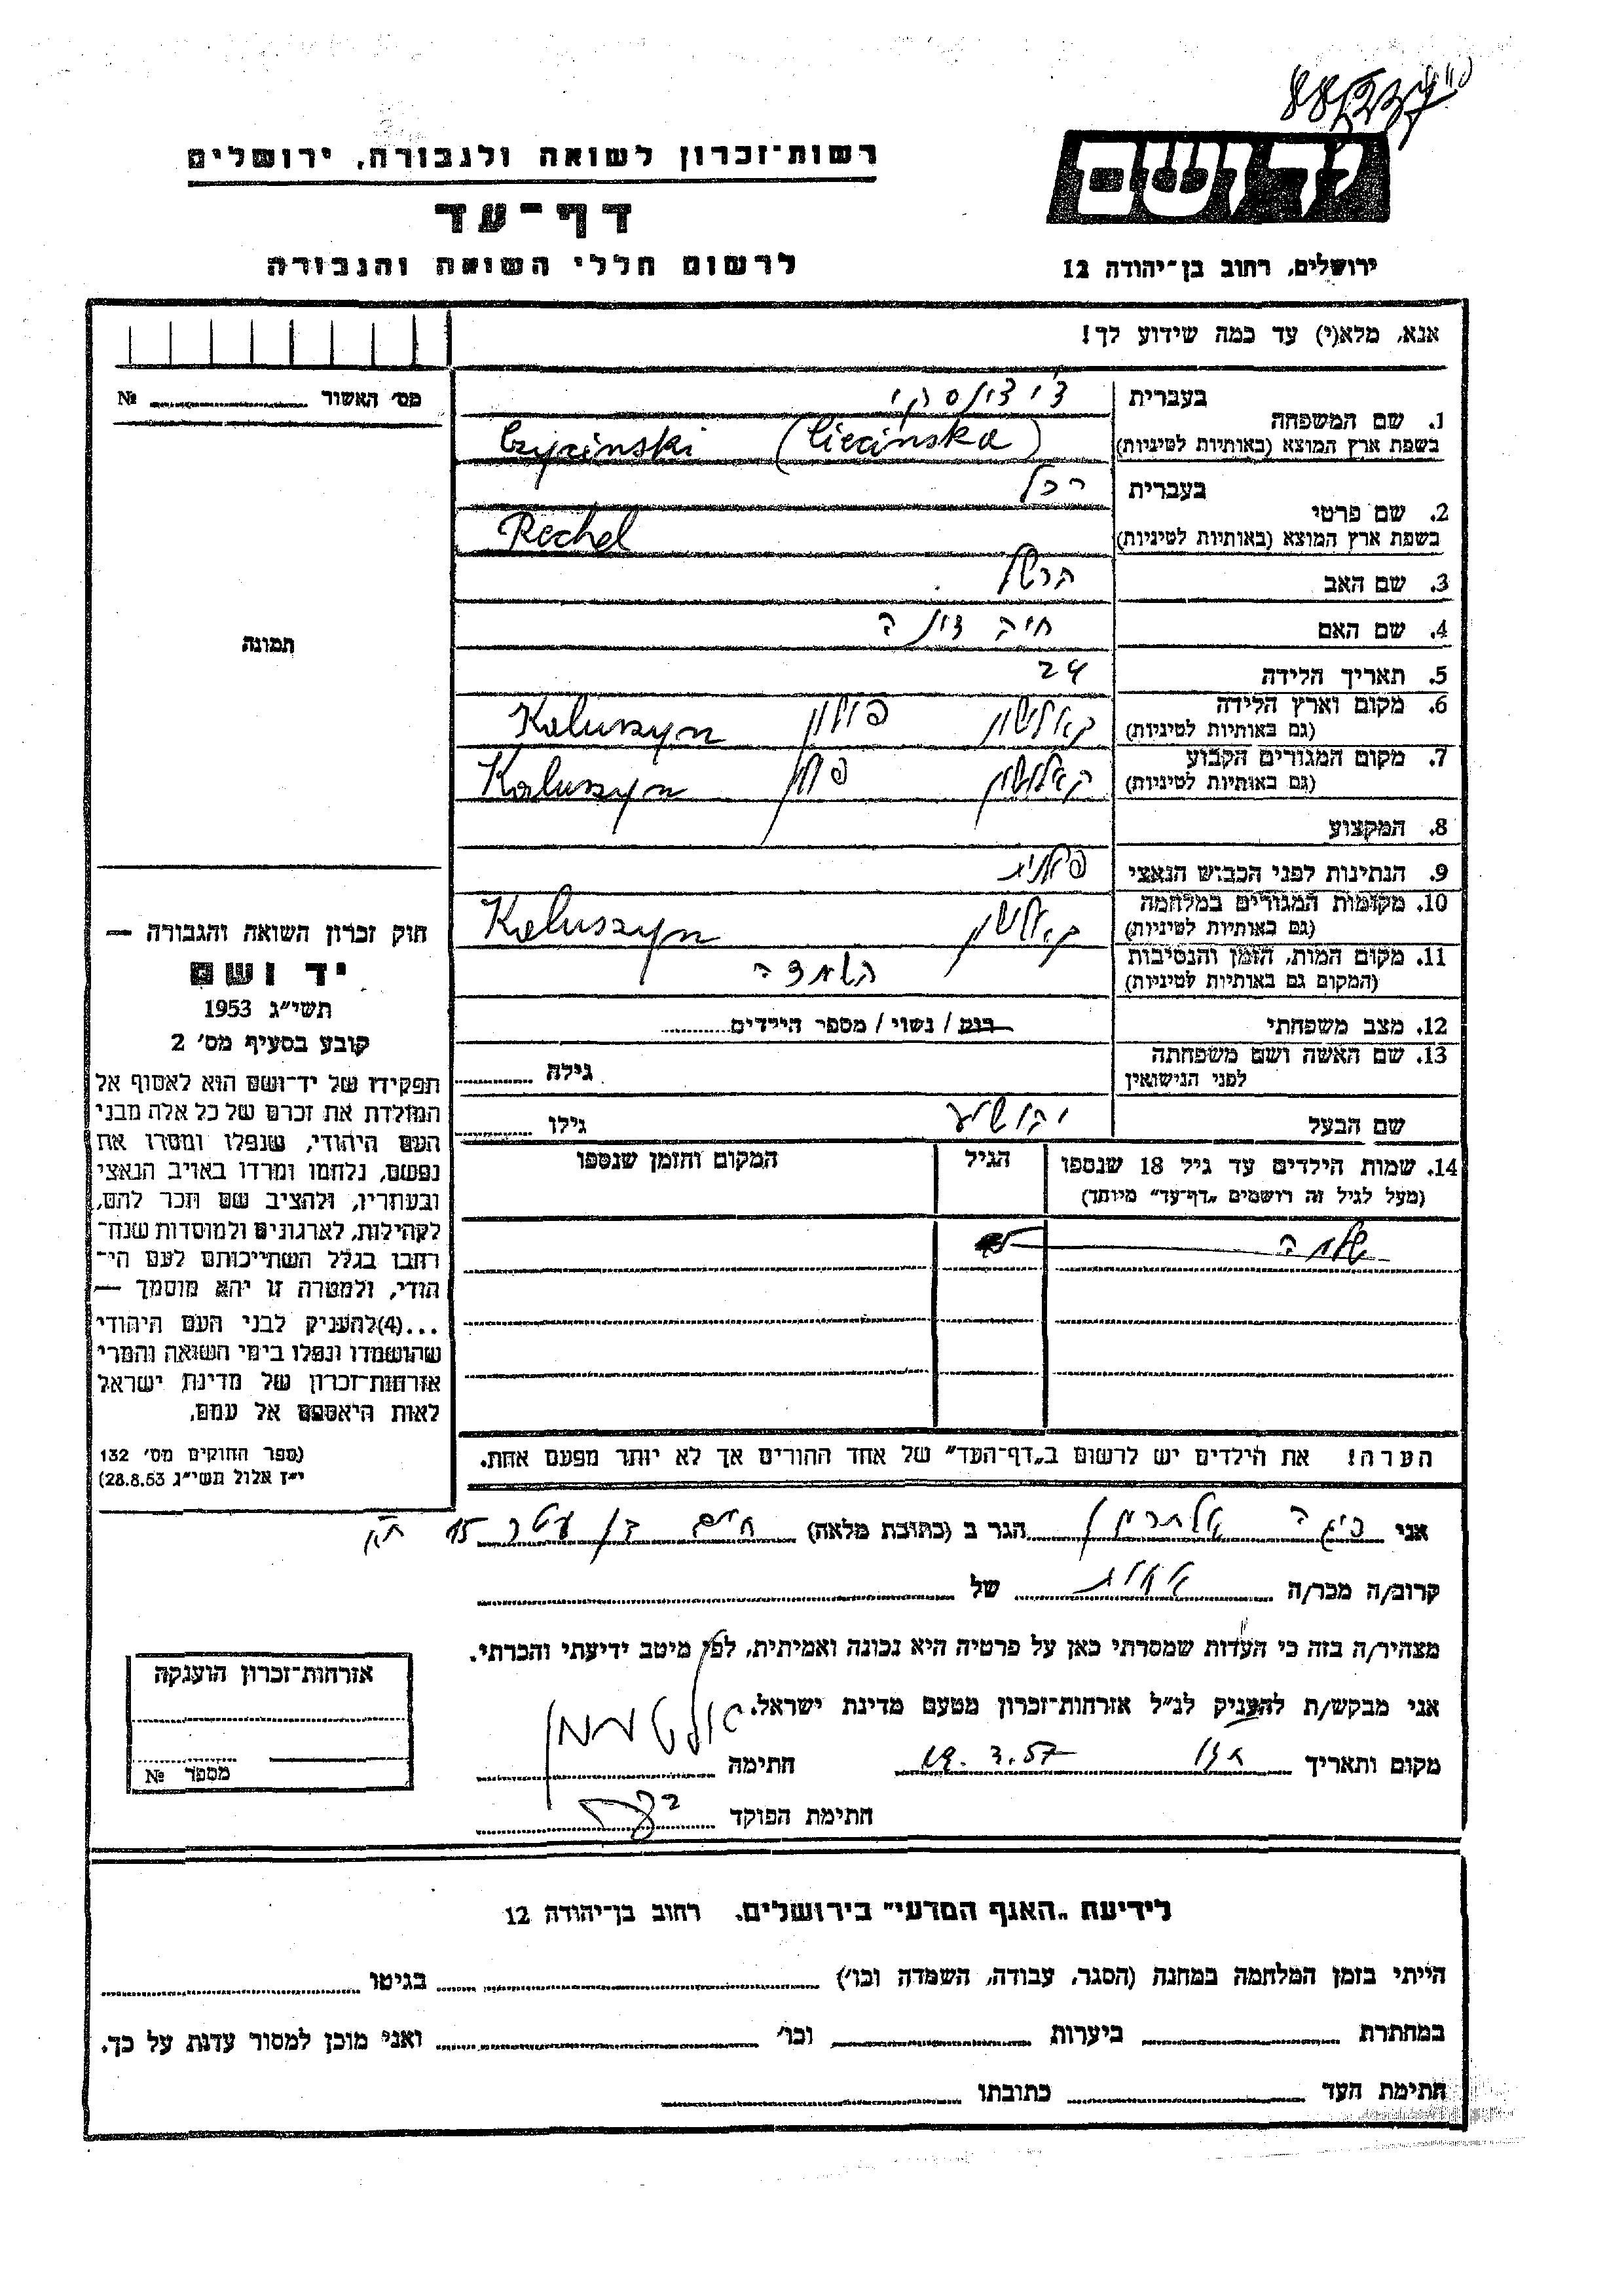 רשות־זכרון לשואה ולגבורה, ירושלים
יד ושם
דף־עד
לרשום חללי השואה והגבורה
ירושלים, רחוב בן־יהודה 12
אנא, מלא(י) עד כמה שידוע לך!
מס׳ האשור № 
1. שם המשפחה בעברית
בשפת ארץ המוצא (באותיות לטיניות) Czyzinski (Ciecinska)
2. שם פרטי בעברית רכל
בשפת ארץ המוצא (באותיות לטיניות) Rechel
3. שם האב הרשל
4. שם האם חיה
5. תאריך הלידה 24
6. מקום וארץ הלידה קאלושין פולין Kaluszyn
(גם באותיות לטיניות)
7. מקום המגורים הקבוע קאלושין פולין Kaluszyn
(גם באותיות לטיניות)
8. המקצוע
9. הנתינות לפני הכבוש הנאצי פולנית
10. מקומות המגורים במלחמה קאלושין Kaluszyn
(גם באותיות לטיניות)
11. מקום המות, הזמן והנסיבות השמדה
(המקום גם באותיות לטיניות)
12. מצב משפחתי רווק / נשוי / מספר הילדים
13. שם האשה ושם משפחתה
לפני הנישואין גילה
שם הבעל יהושע גילו
14. שמות הילדים עד גיל 18 שנספו הגיל המקום והזמן שנספו
(מעל לגיל זה רושמים „דף־עד” מיוחד)
שלמה
הערה! את הילדים יש לרשום ב„דף־העד” של אחד ההורים אך לא יותר מפעם אחת.
תמונה
חוק זכרון השואה והגבורה —
יד ושם
תשי״ג 1953
קובע בסעיף מס׳ 2
תפקידו של יד־ושם הוא לאסוף אל
המולדת את זכרם של כל אלה מבני
העם היהודי, שנפלו ומסרו את
נפשם, נלחמו ומרדו באויב הנאצי
ובעוזריו, ולהציב שם וזכר להם,
לקהילות, לארגונים ולמוסדות שנח־
רבו בגלל השתייכותם לעם הי־
הודי, ולמטרה זו יהא מוסמך —
...(4) להעניק לבני העם היהודי
שהושמדו ונפלו בימי השואה והמרי
אזרחות־זכרון של מדינת ישראל
לאות היאספם אל עמם.
(ספר החוקים מס׳ 132
י״ז אלול תשי״ג 28.8.53)
אני אלתרמן הגר ב (כתובת מלאה) חיים בן עטר 15
קרוב/ה מכר/ה של
מצהיר/ה בזה כי העדות שמסרתי כאן על פרטיה היא נכונה ואמיתית, לפי מיטב ידיעתי והכרתי.
אני מבקש/ת להעניק לנ״ל אזרחות־זכרון מטעם מדינת ישראל.
מקום ותאריך 19.3.57 חתימה
חתימת הפוקד
אזרחות־זכרון הוענקה
מספר №
לידיעת „האגף המדעי” בירושלים, רחוב בן־יהודה 12
הייתי בזמן המלחמה במחנה (הסגר, עבודה, השמדה וכו׳) בגיטו
במחתרת ביערות וכו׳ ואני מוכן למסור עדות על כך.
חתימת העד כתובתו